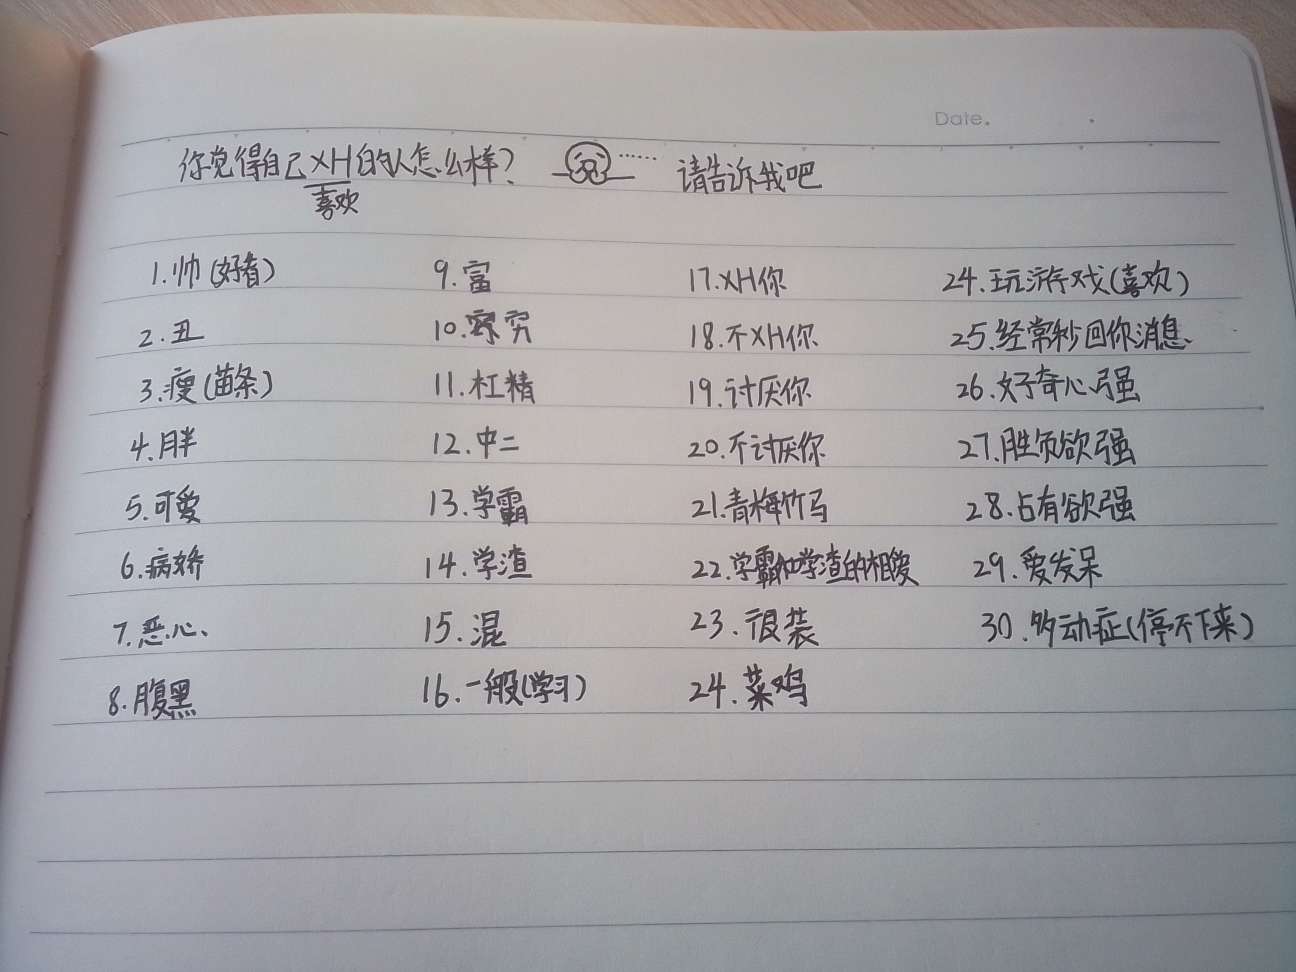 Date.
你觉得自己XH的人怎么样？ …… 请告诉我吧
喜欢
1.帅(好看)
2.丑
3.瘦(苗条)
4.胖
5.可爱
6.病娇
7.恶心、
8.腹黑
9.富
10.穷
11.杠精
12.中二
13.学霸
14.学渣
15.混
16.一般(学习)
17.XH你
18.不XH你
19.讨厌你
20.不讨厌你
21.青梅竹马
22.学霸和学渣的相爱
23.很装
24.菜鸡
24.玩游戏(喜欢)
25.经常秒回你消息
26.好奇心强
27.胜负欲强
28.占有欲强
29.爱发呆
30.多动症(停不下来)